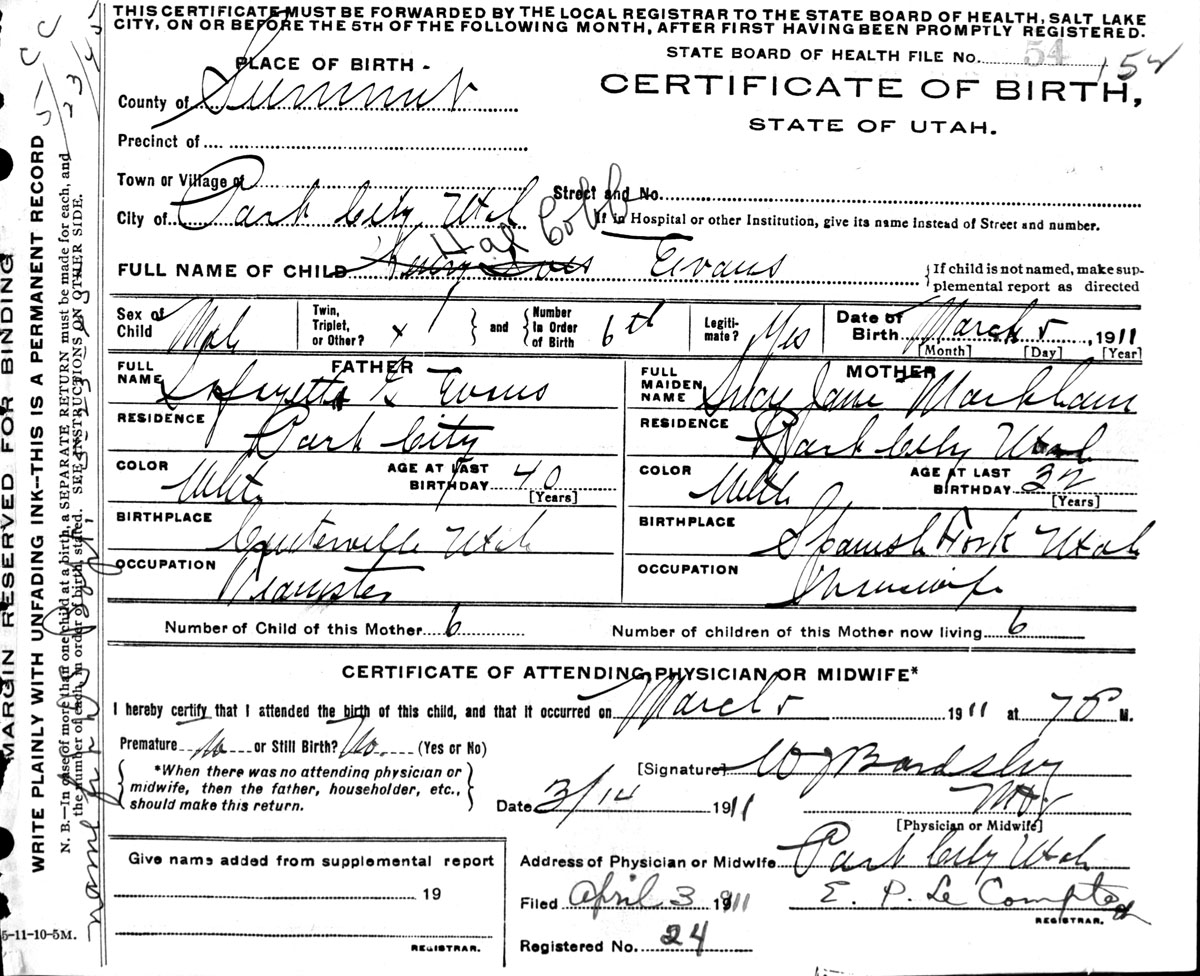 THIS CERTIFICATE MUST BE FORWARDED BY THE LOCAL REGISTRAR TO THE STATE BOARD OF HEALTH, SALT LAKE
CITY, ON OR BEFORE THE 5TH OF THE FOLLOWING MONTH, AFTER FIRST HAVING BEEN PROMPTLY REGISTERED.
STATE BOARD OF HEALTH FILE No. 54 154
PLACE OF BIRTH -
CERTIFICATE OF BIRTH,
STATE OF UTAH.
County of Summit
Precinct of
Town or Village of
Street and No.
City of Park City Utah
If in Hospital or other Institution, give its name instead of Street and number.
Hal Cobb
FULL NAME OF CHILD Evans
{If child is not named, make sup-
plemental report as directed
Sex of Child Male
Twin, Triplet, or Other? x
and
Number In Order of Birth 6th
Legiti-mate? Yes
Date of Birth March 5, 1911
[Month] [Day] [Year]
FATHER
FULL NAME Lafayette G Evans
RESIDENCE Park City
COLOR White
AGE AT LAST BIRTHDAY 40
[Years]
BIRTHPLACE Centerville Utah
OCCUPATION Teamster
MOTHER
FULL MAIDEN NAME Jane Markham
RESIDENCE Park City Utah
COLOR White
AGE AT LAST BIRTHDAY 32
[Years]
BIRTHPLACE Spanish Fork Utah
OCCUPATION Housewife
Number of Child of this Mother 6
Number of children of this Mother now living 6
CERTIFICATE OF ATTENDING PHYSICIAN OR MIDWIFE*
I hereby certify that I attended the birth of this child, and that it occurred on March 5 1911 at 7 P M.
Premature No or Still Birth? No (Yes or No)
*When there was no attending physician or
midwife, then the father, householder, etc.,
should make this return.
[Signature] W J Bardsley
Date 3/14 1911
M.D.
[Physician or Midwife]
Give name added from supplemental report
19
REGISTRAR.
Address of Physician or Midwife Park City Utah
Filed April 3 1911
E. P. Le Compte
REGISTRAR.
Registered No. 24
5-11-10-5M.
MARGIN RESERVED FOR BINDING
WRITE PLAINLY WITH UNFADING INK—THIS IS A PERMANENT RECORD
N. B.—In case of more than one child at a birth, a SEPARATE RETURN must be made for each, and
the number of each, in order of birth, stated. SEE INSTRUCTIONS ON OTHER SIDE.